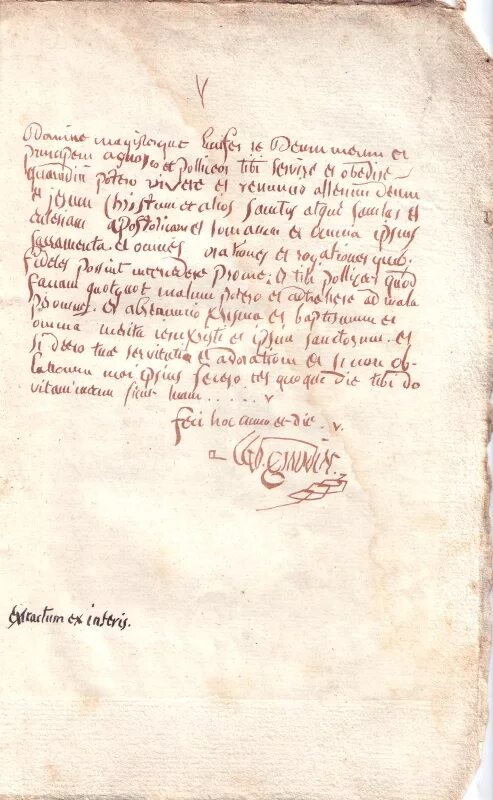 Domine magisterque Lucifer te Deum meum et
principem agnosco et polliceor tibi servire et obedire
quamdiu potero vivere et renuncio alterum Deum
et jesum Christum et alios sanctos atque sanctas et
ecclesiam apostolicam et romanam et omnia ipsius
sacramenta et omnes orationes et rogationes quib.
fideles possint intercedere pro me et tibi polliceor quod
faciam quotquot malum potero et adtrahere ad mala
per omnes et abrenuncio chrisma et baptismum et
omnia merita jesu christi et ipsius sanctorum et
si deero tuae servitutia et adorationi et si non ob-
lationem mei ipsius fecero ter quoque die tibi do
vitam meam sicut tuam.....
feci hoc anno et die.
extractum ex inferis.